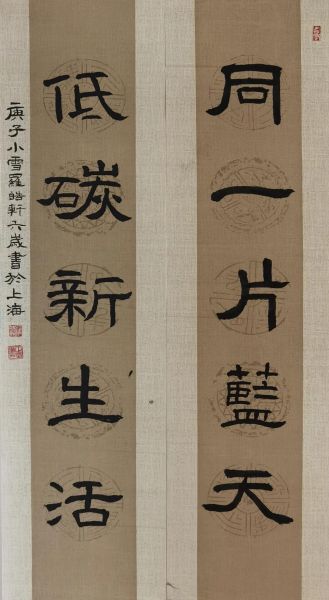 同一片藍天
低碳新生活
庚子小雪羅皓軒六歲書於上海